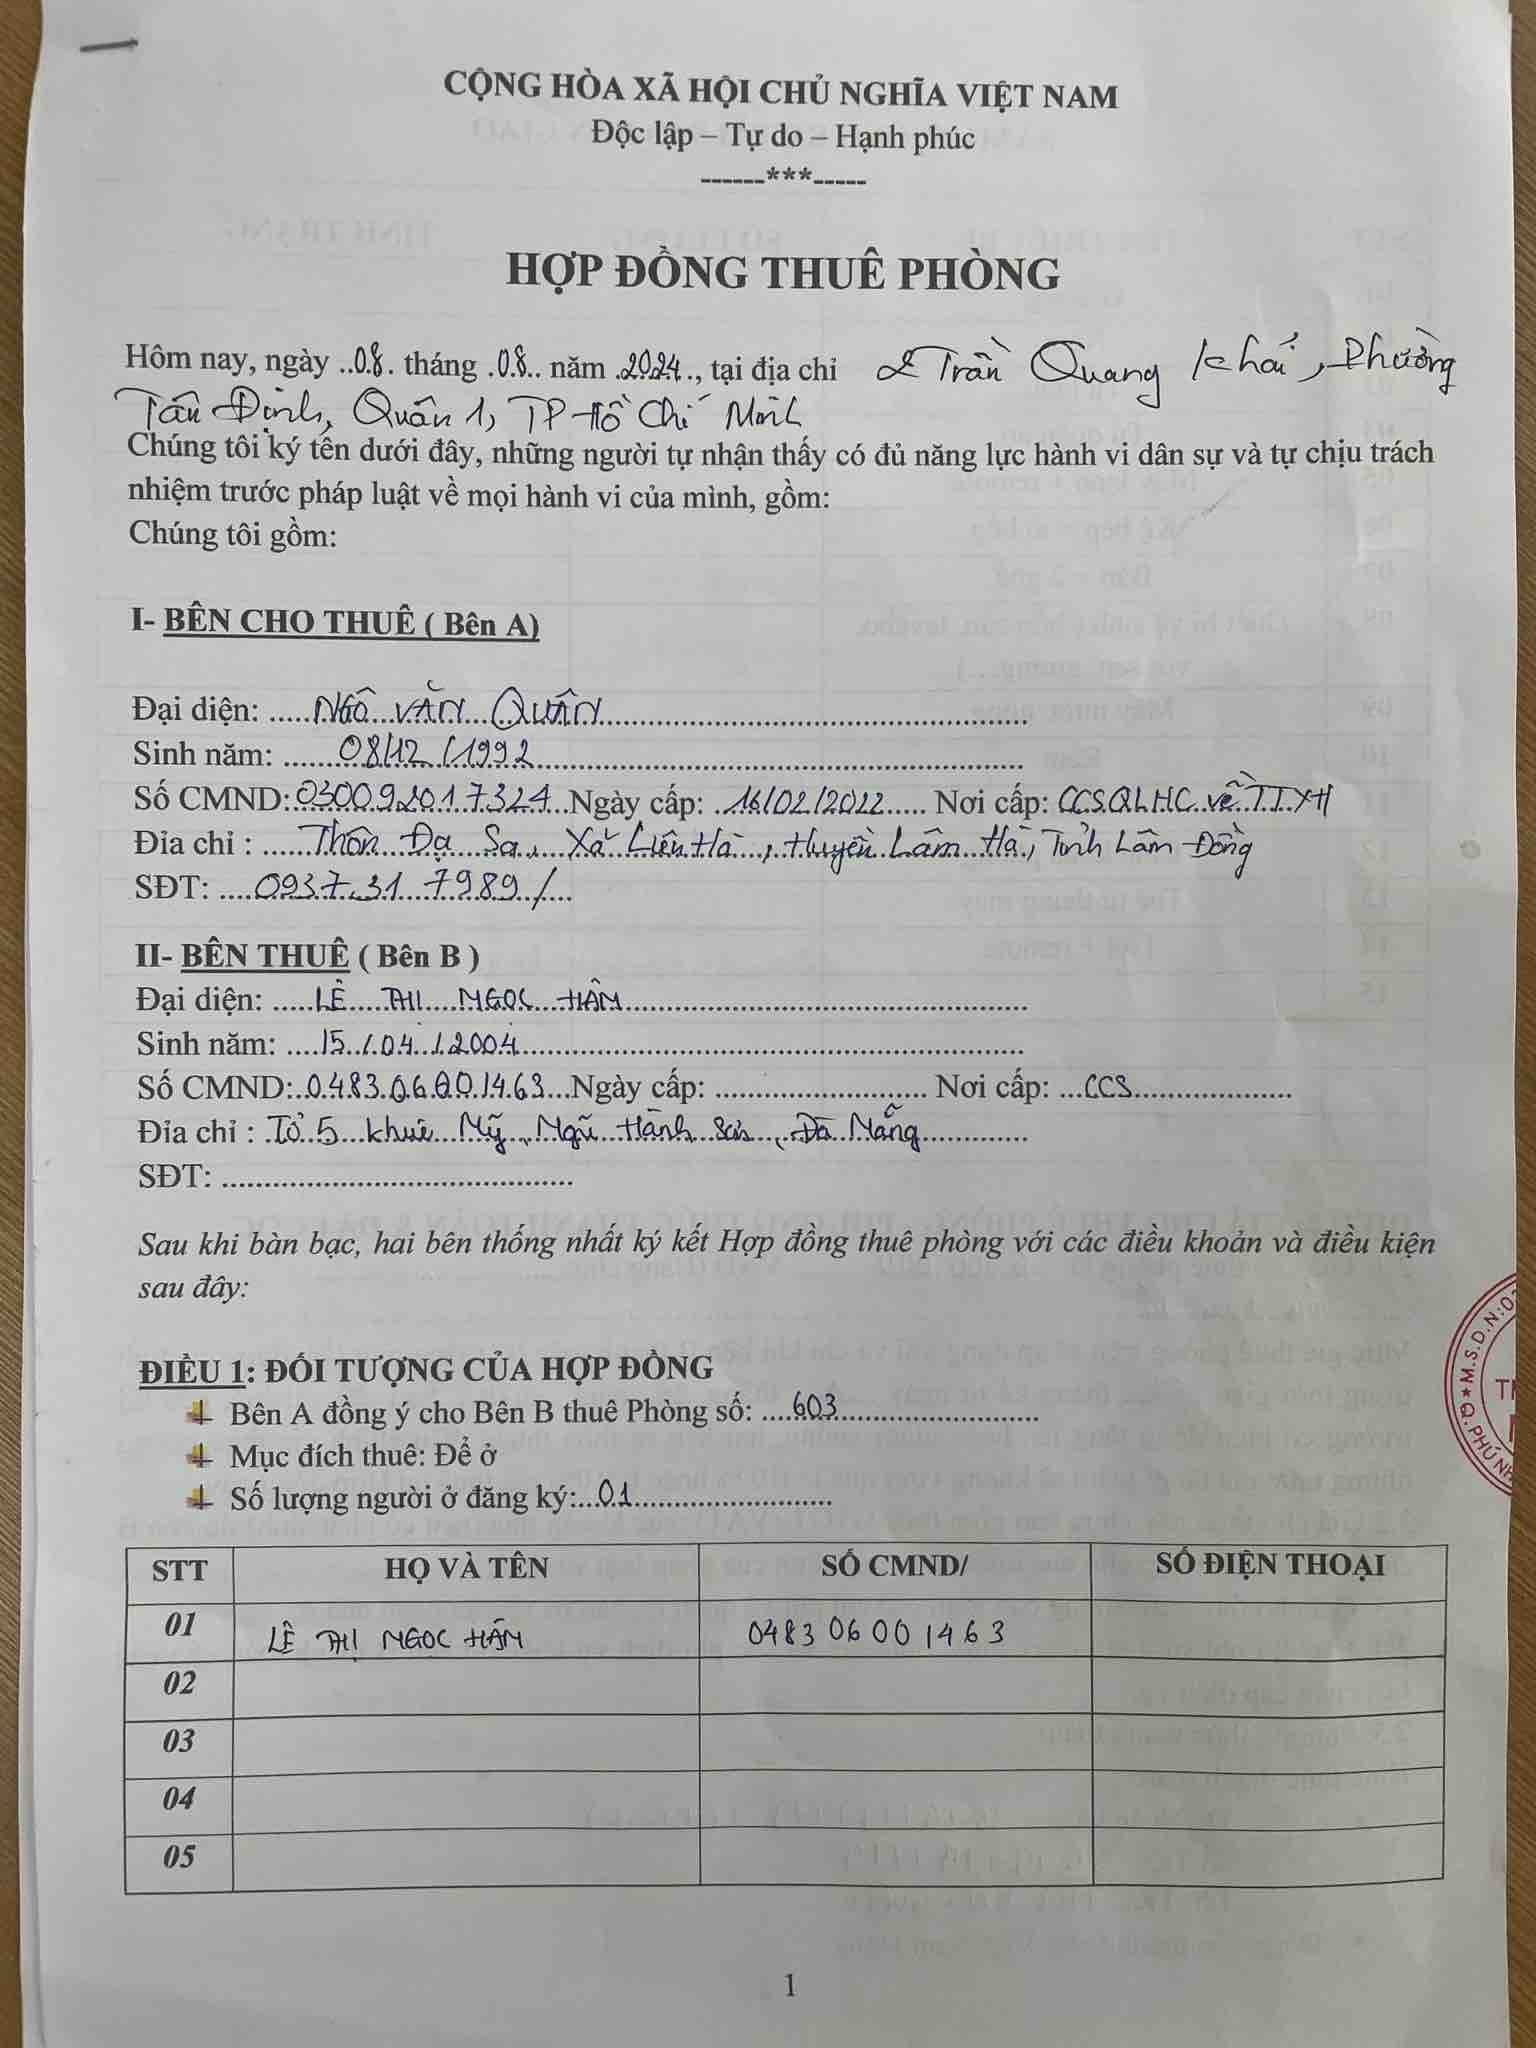 CỘNG HÒA XÃ HỘI CHỦ NGHĨA VIỆT NAM
Độc lập – Tự do – Hạnh phúc
------***-----
HỢP ĐỒNG THUÊ PHÒNG
Hôm nay, ngày ..08. tháng .08.. năm .2024.., tại địa chỉ 2 Trần Quang Khải, Phường
Tân Định, Quận 1, TP Hồ Chí Minh
Chúng tôi ký tên dưới đây, những người tự nhận thấy có đủ năng lực hành vi dân sự và tự chịu trách
nhiệm trước pháp luật về mọi hành vi của mình, gồm:
Chúng tôi gồm:
I- BÊN CHO THUÊ ( Bên A)
Đại diện: NGÔ VĂN QUÂN
Sinh năm: 08/12/1992
Số CMND: 030092017324 Ngày cấp: 16/02/2022 Nơi cấp: CCSQLHC về TTXH
Đỉa chỉ : Thôn Đạ Sa, Xã Liên Hà, Huyện Lâm Hà, Tỉnh Lâm Đồng
SĐT: 0937.31 7989/
II- BÊN THUÊ ( Bên B )
Đại diện: LÊ THỊ NGỌC HÂN
Sinh năm: 15/04/2004
Số CMND: 048306001463 Ngày cấp: Nơi cấp: CCS
Đỉa chỉ : Tổ 5 Khuê Mỹ, Ngũ Hành Sơn, Đà Nẵng
SĐT:
Sau khi bàn bạc, hai bên thống nhất ký kết Hợp đồng thuê phòng với các điều khoản và điều kiện
sau đây:
ĐIỀU 1: ĐỐI TƯỢNG CỦA HỢP ĐỒNG
Bên A đồng ý cho Bên B thuê Phòng số: 603
Mục đích thuê: Để ở
Số lượng người ở đăng ký: 01
STT HỌ VÀ TÊN SỐ CMND/ SỐ ĐIỆN THOẠI
01 LÊ THỊ NGỌC HÂN 048306001463
02
03
04
05
1
M.S.D.N:0
Q.PHÚ NH